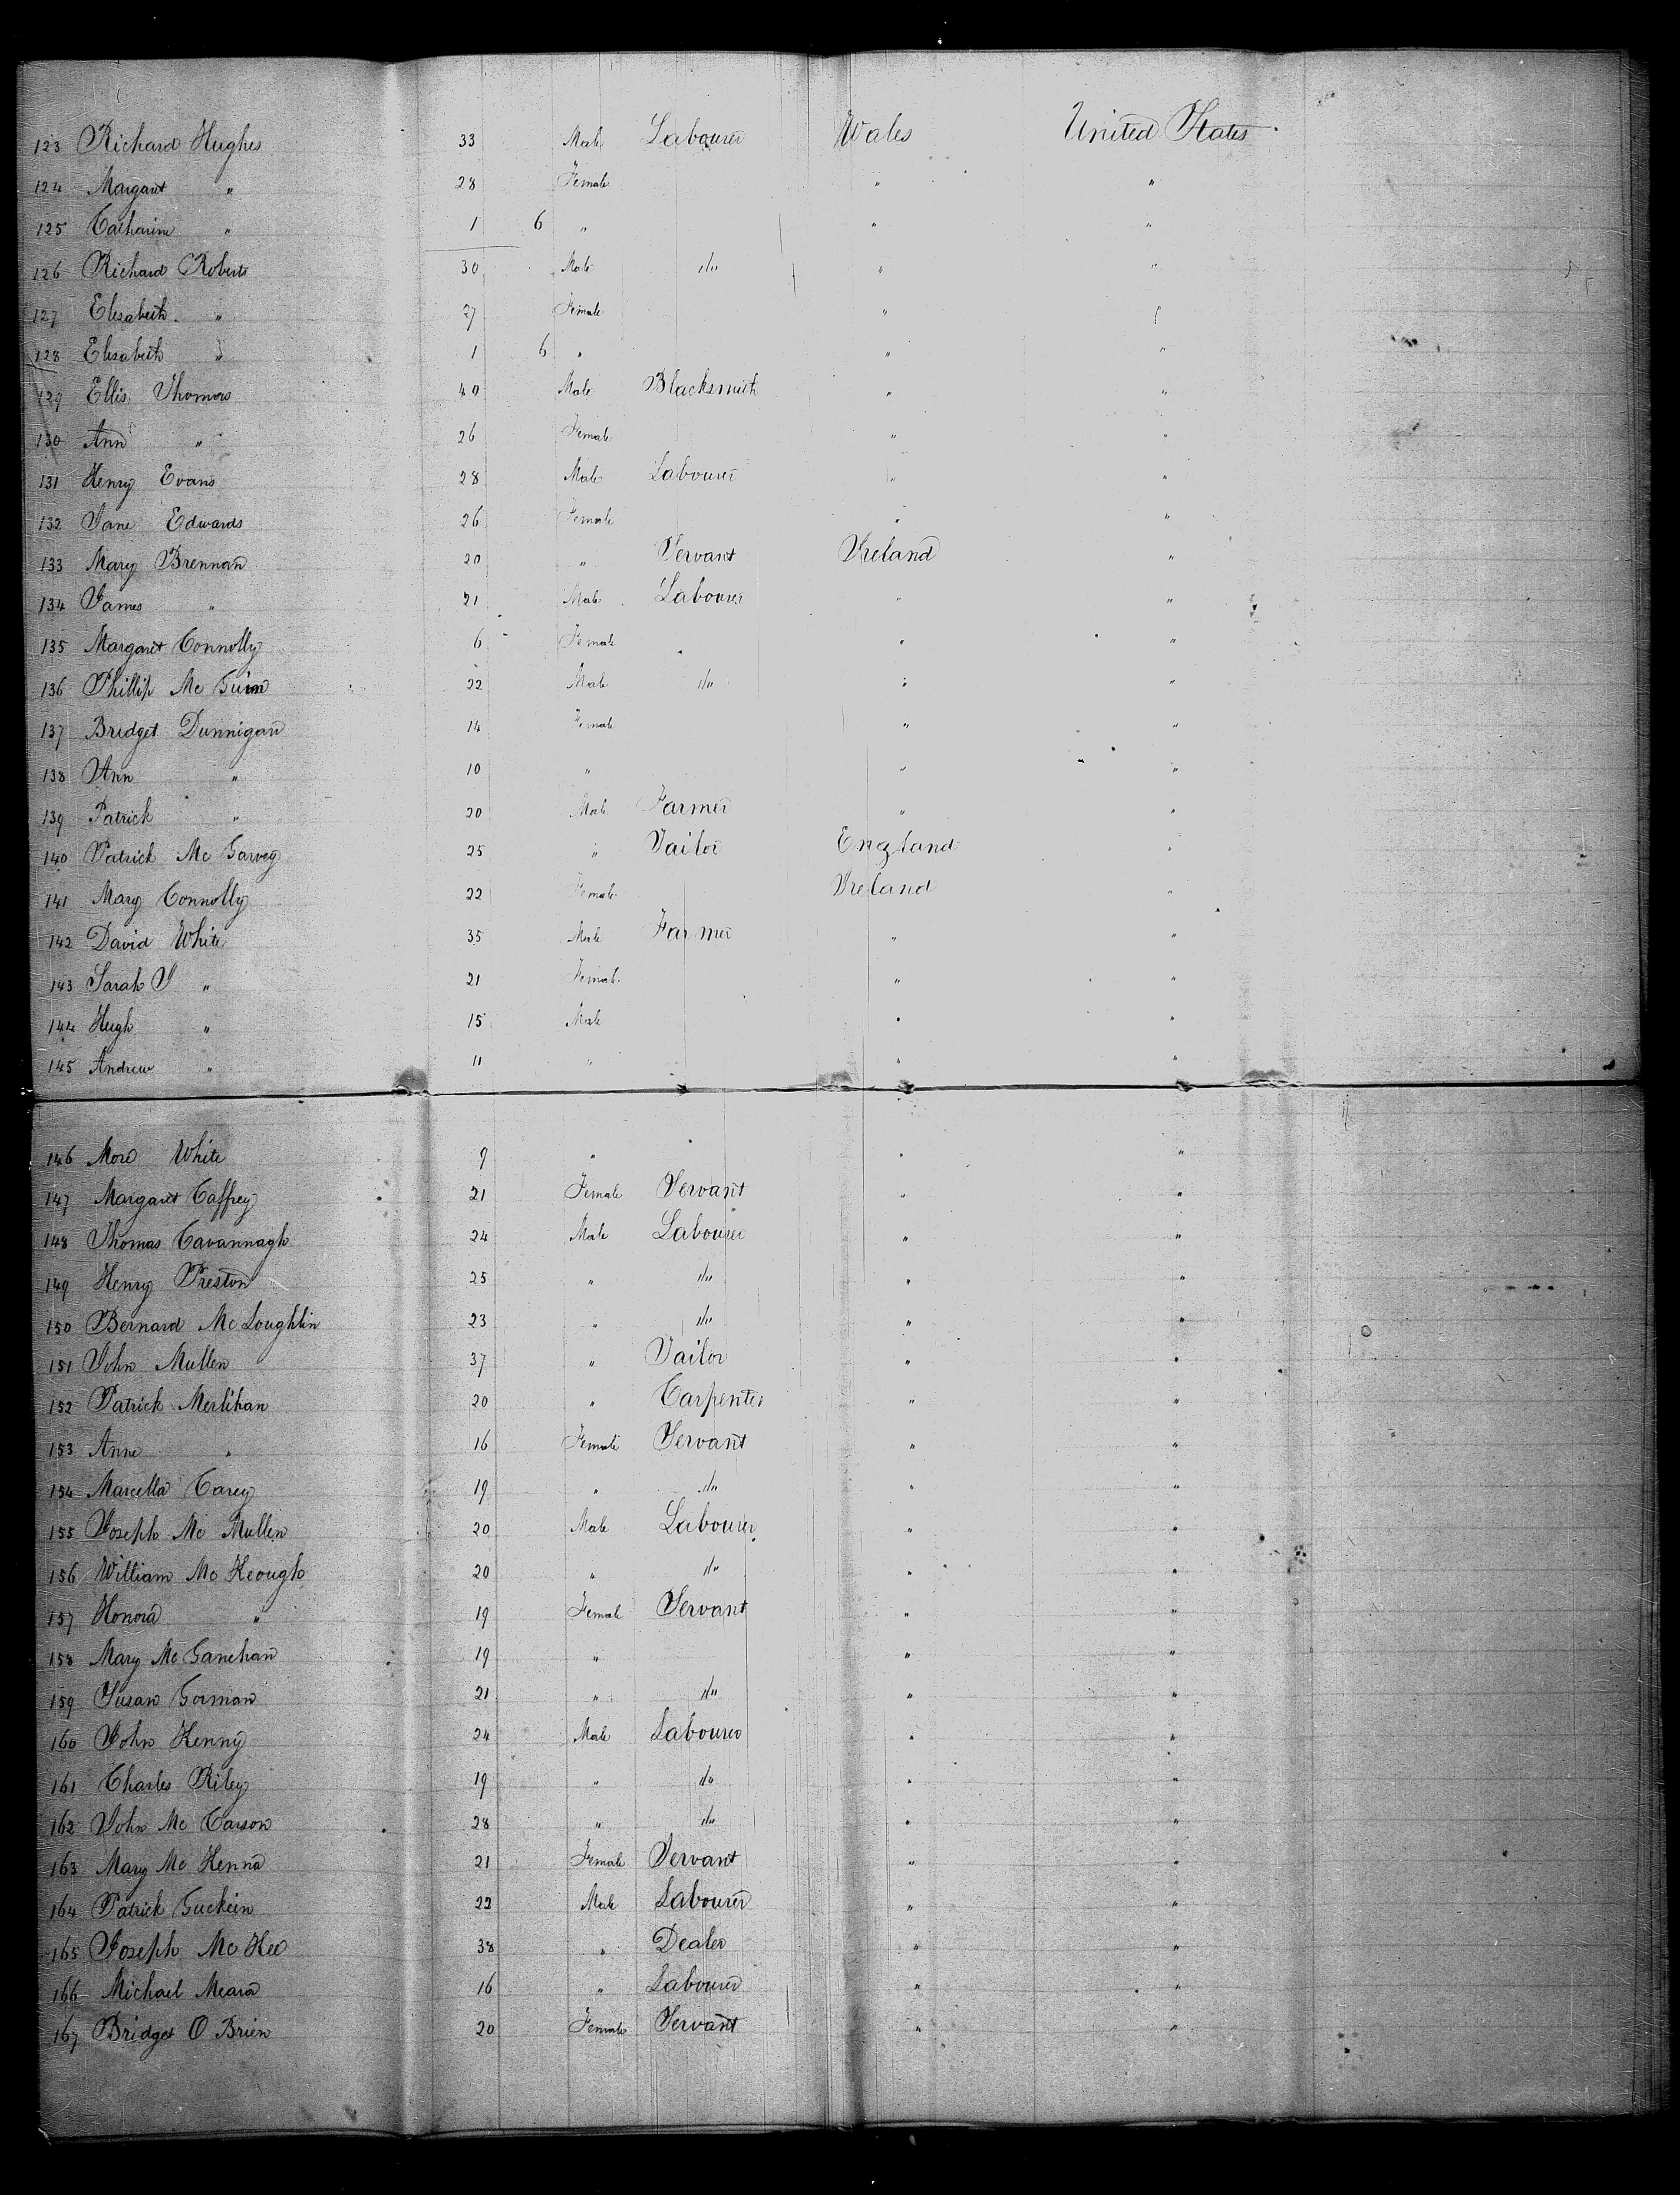 123 Richard Hughes 33 Male Labourer Wales United States
124 Margaret " 28 Female " "
125 Catharine " 1 6 " " "
126 Richard Roberts 30 Male "/" " "
127 Elisabeth " 27 Female " "
128 Elisabeth " 1 6 " " "
129 Ellis Thomas 40 Male Blacksmith " "
130 Ann " 26 Female " "
131 Henry Evans 28 Male Labourer " "
132 Jane Edwards 26 Female " "
133 Mary Brennan 20 " Servant Ireland "
134 James " 21 Male Labourer " "
135 Margaret Connolly 6 Female " "
136 Phillip Mc 22 Male "/" " "
137 Bridget Dunnigan 14 Female " "
138 Ann " 10 " " "
139 Patrick " 20 Male Farmer " "
140 Patrick Mc Garvey 25 " Tailor England "
141 Mary Connolly 22 Female Ireland "
142 David White 35 Male Farmer " "
143 Sarah J " 21 Female " "
144 Hugh " 15 Male " "
145 Andrew " 11 " " "
146 White 9 " " "
147 Margaret Caffrey 21 Female Servant " "
148 Thomas Cavannagh 24 Male Labourer " "
149 Henry Preston 25 " "/" " "
150 Bernard Mc Loughlin 23 " "/" " "
151 John Mullen 37 " Tailor " "
152 Patrick Merlihan 20 " Carpenter " "
153 Anne " 16 Female Servant " "
154 Marcella Carey 19 " "/" " "
155 Joseph Mc Mullen 20 Male Labourer " "
156 William Mc Keough 20 " "/" " "
157 Honora " 19 Female Servant " "
158 Mary Mc Ganehan 19 " " "
159 Susan Gorman 21 " "/" " "
160 John Kenny 24 Male Labourer " "
161 Charles Riley 19 " "/" " "
162 John Mc Carson 28 " "/" " "
163 Mary Mc Kenna 21 Female Servant " "
164 Patrick Guckein 22 Male Labourer " "
165 Joseph Mc Kee 38 " Dealer " "
166 Michael Meara 16 " Labourer " "
167 Bridget O Brien 20 Female Servant " "